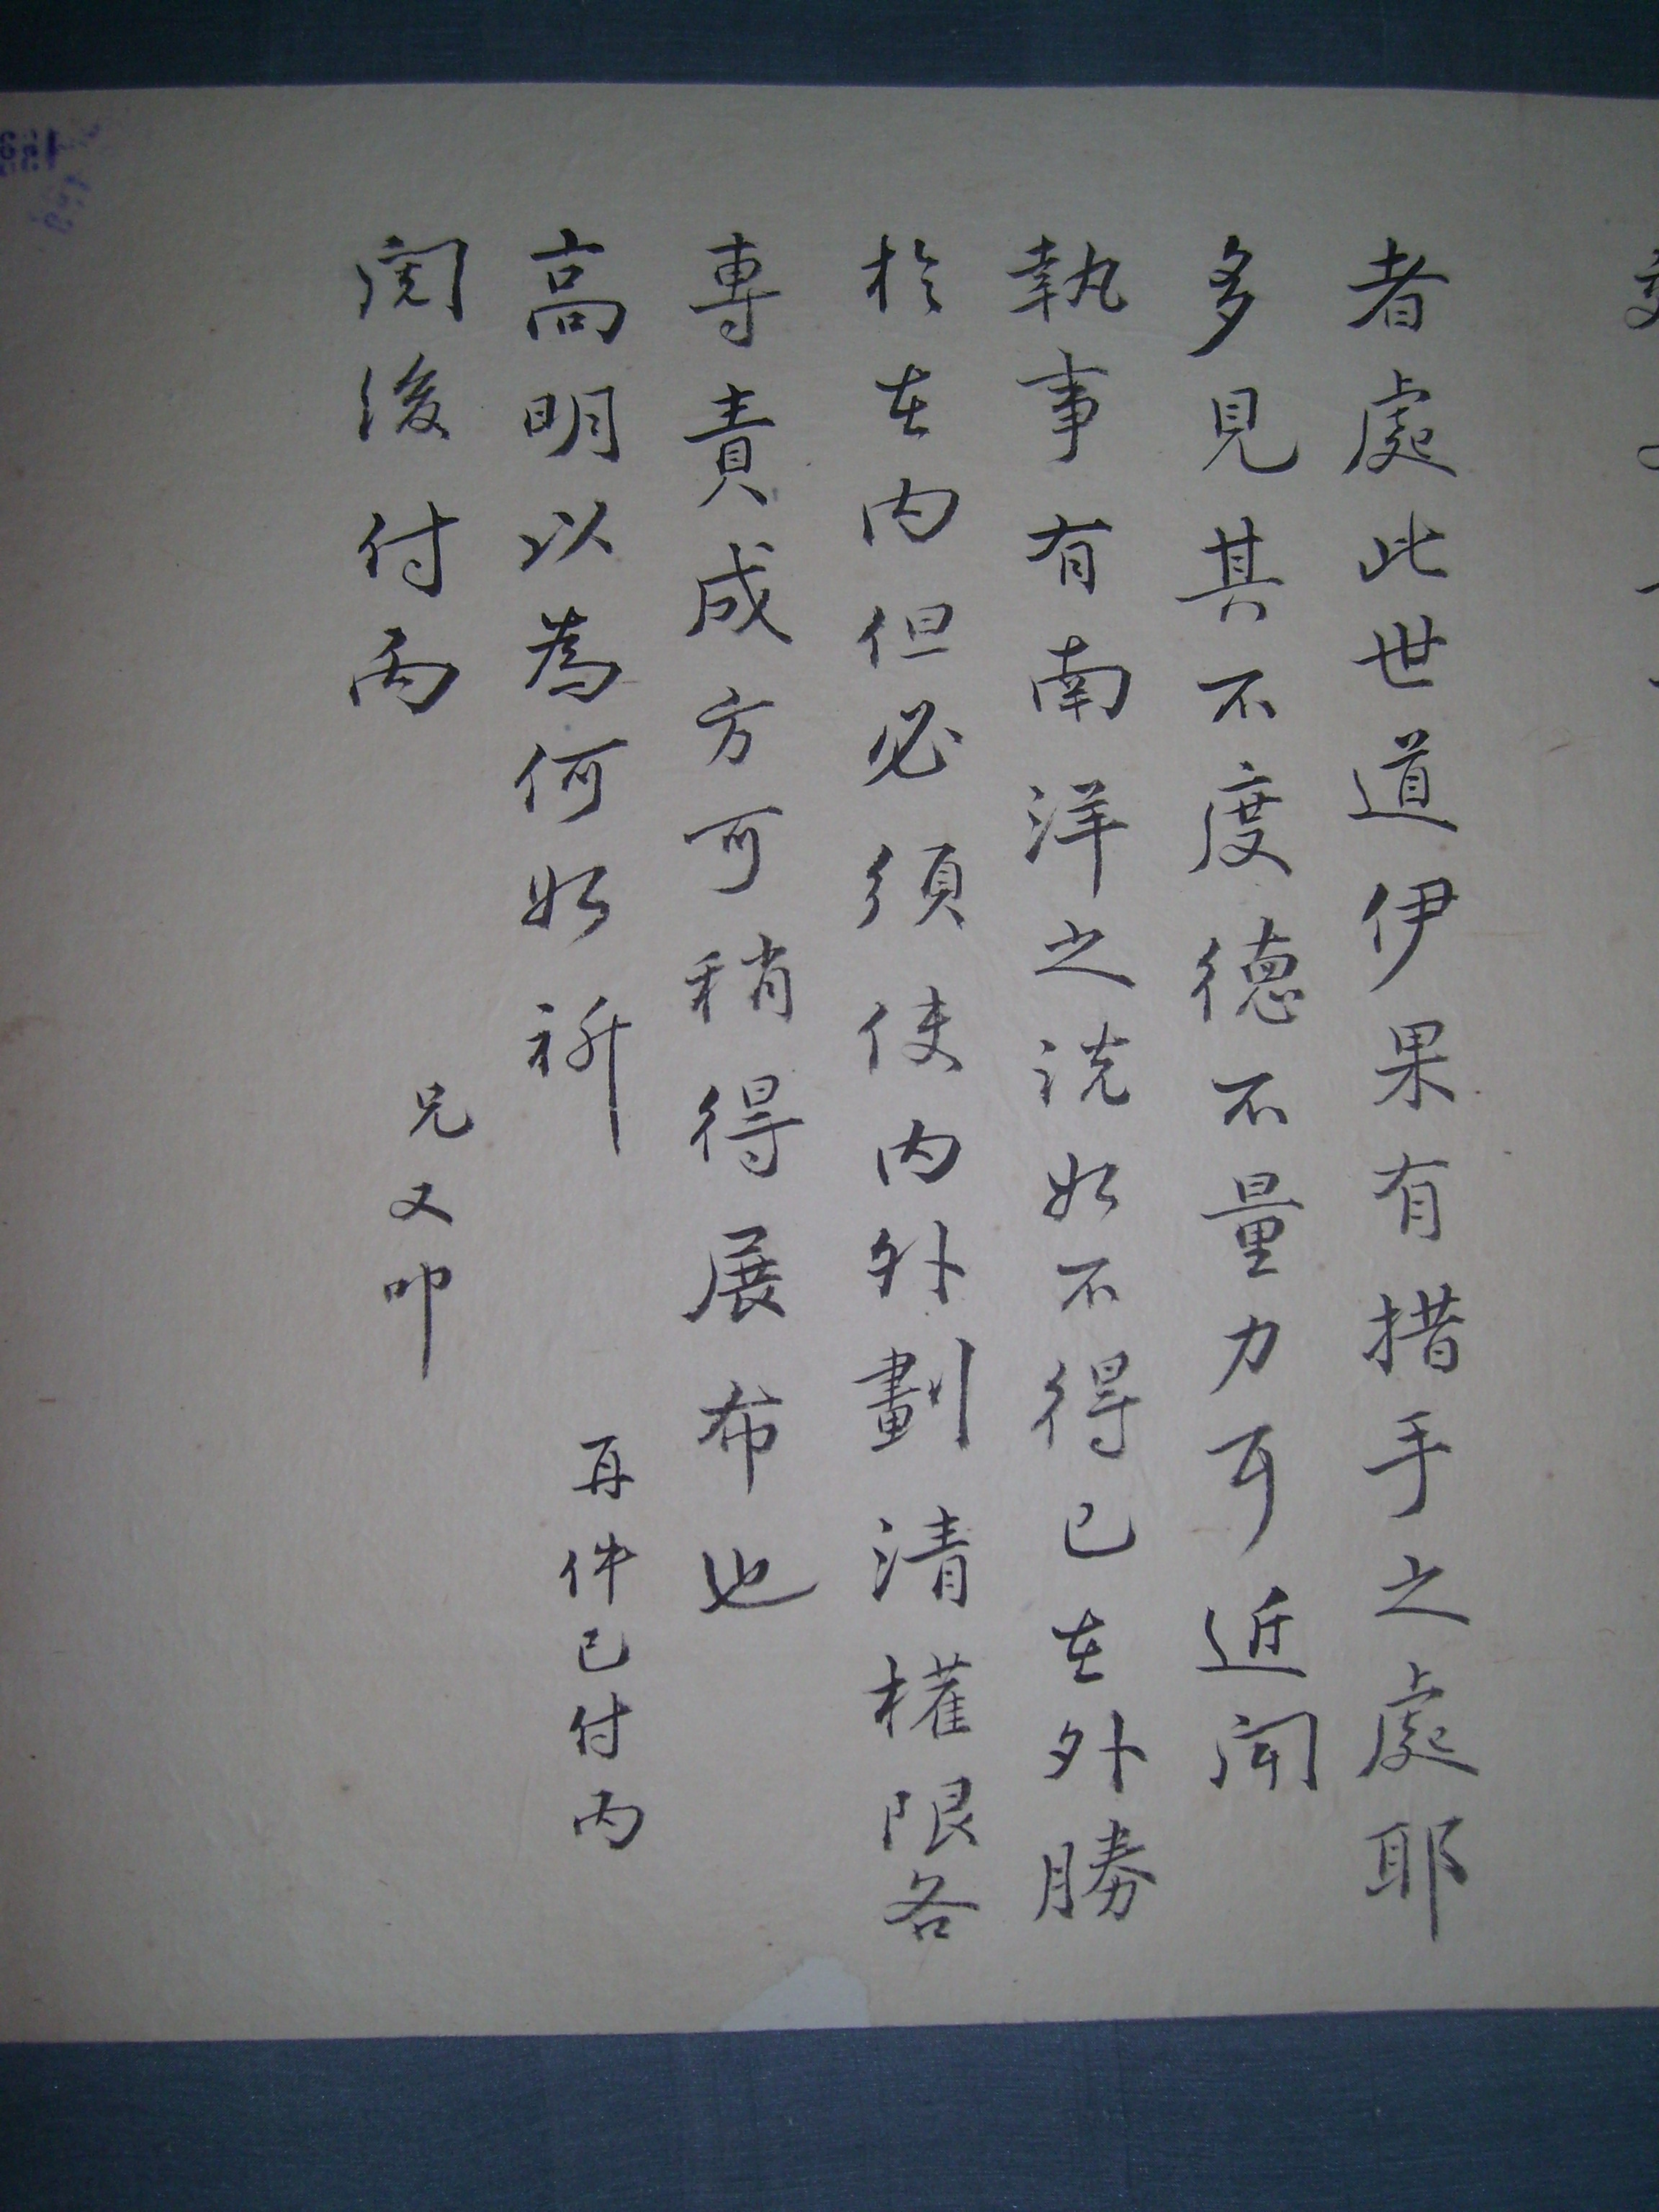 者處此世道伊果有措手之處耶
多見其不度德不量力耳近聞
執事有南洋之說如不得已在外勝
於在內但必須使內外劃清權限各
專責成方可稍得展布也
高明以為何如祈
閱後付丙
兄又叩
再件已付丙